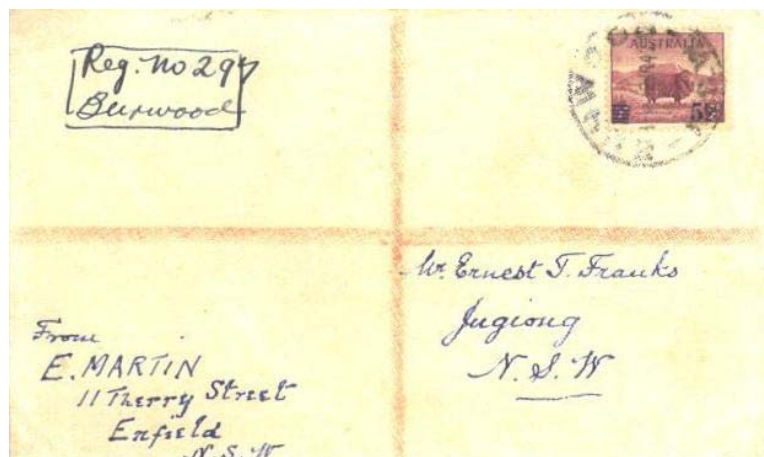 Reg. No 297
Burwood
AUSTRALIA
5½
Mr. Ernest T. Franks
Jugiong
N.S.W
From
E. MARTIN
11 Therry Street
Enfield
N.S.W